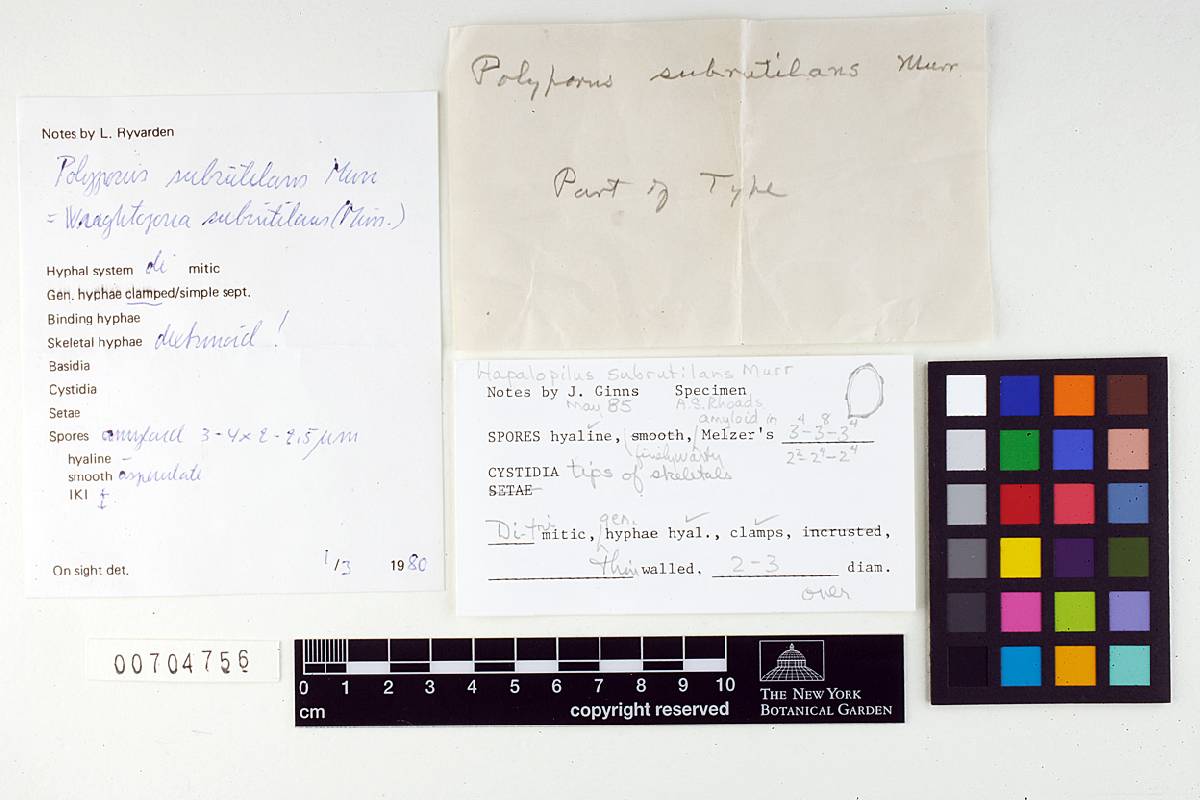 Polyporus subrutilans Murr.
Part of Type
Notes by L. Ryvarden
Polyporus subrutilans Murr
= Wrightoporia subrutilans (Murr.)
Hyphal system di mitic
Gen. hyphae clamped/simple sept.
Binding hyphae
Skeletal hyphae dextrinoid !
Basidia
Cystidia
Setae
Spores amyloid 3-4 x 2-2,5 µm
hyaline –
smooth asperulate
IKI +
On sight det. 1/3 1980
Hapalopilus subrutilans Murr
Notes by J. Ginns Specimen
May 85 A.S. Rhoads
amyloid in
SPORES hyaline, smooth, Melzer's 3⁴-3⁸-3⁴
finely warty 2²-2⁴-2⁴
CYSTIDIA tips of skeletals
SETAE
gen.
Di-tri mitic, hyphae hyal., clamps, incrusted,
thin walled. 2-3 diam.
over
00704756
0 1 2 3 4 5 6 7 8 9 10
cm copyright reserved
THE NEW YORK
BOTANICAL GARDEN